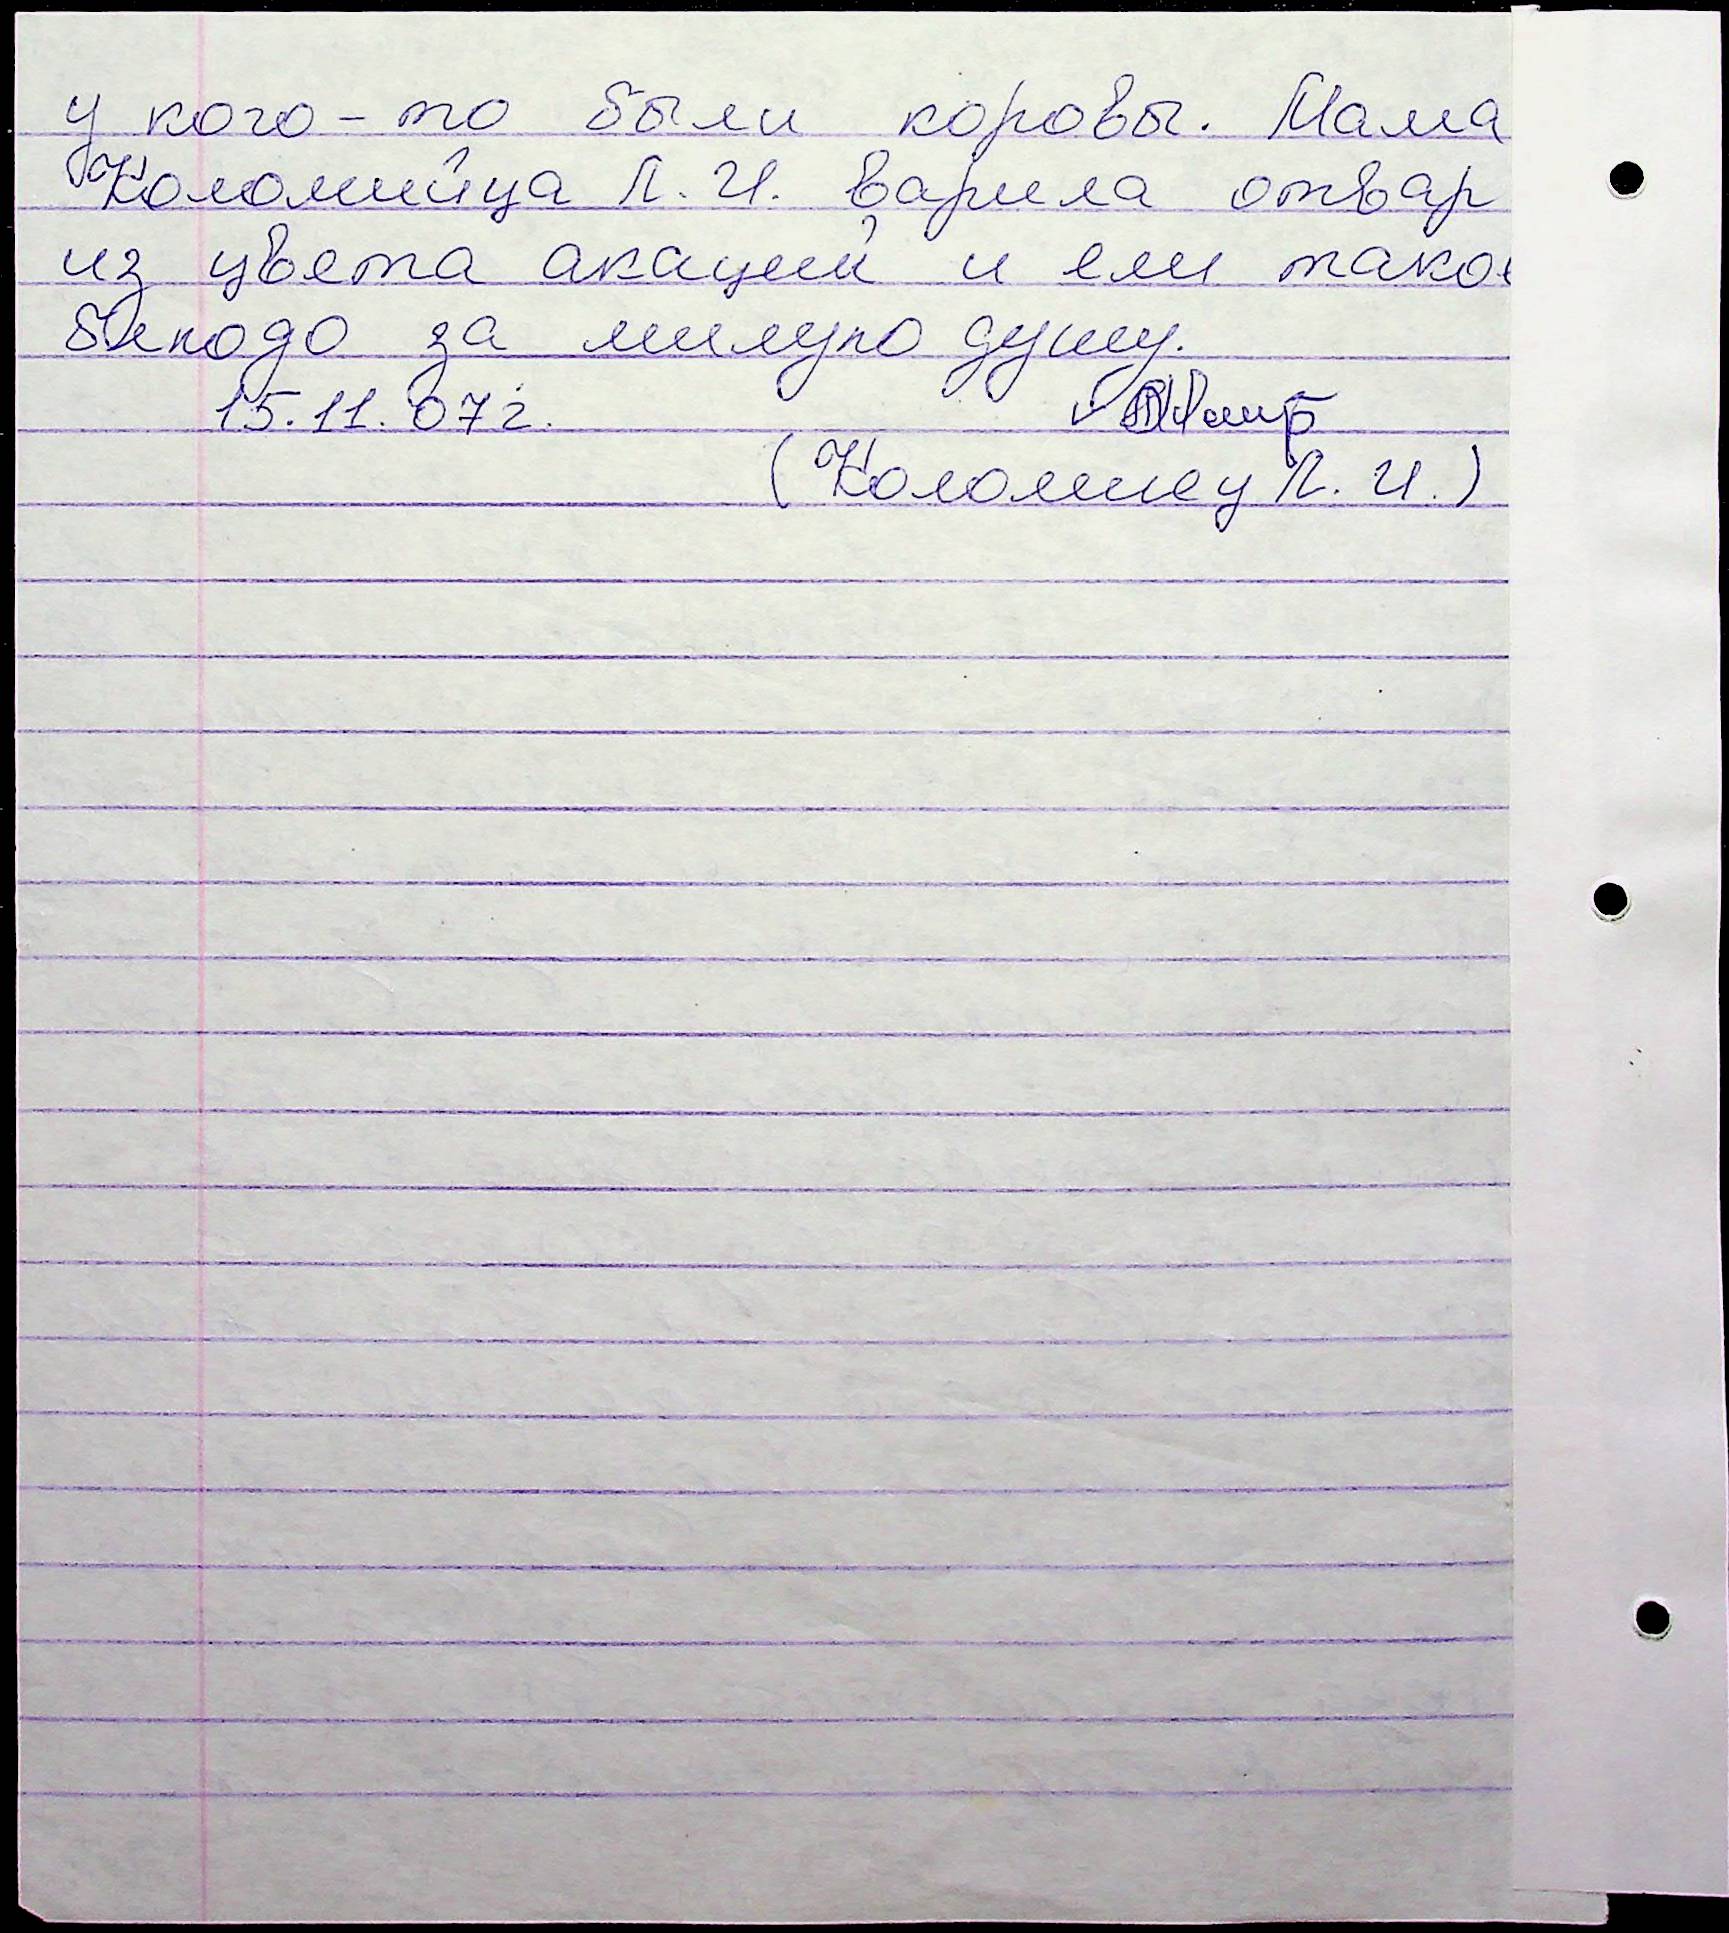 у кого-то были коровы. Мама
Коломийца Л. И. варила отвар
из цвета акаций и ели такое
блюдо за милую душу.
15.11.07г.
(Коломиец Л. И.)